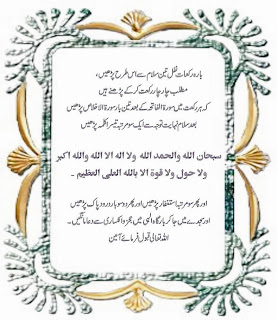 بارہ رکعات نفل تین سلام سے اس طرح پڑھیں،
مطلب چار چار رکعت کر کے پڑھنے ہیں
کہ ہر رکعت میں سورۃ الفاتحہ کے بعد تین بار سورۃ الاخلاص پڑھیں
بعد سلام نہایت توجہ سے ایک سو مرتبہ تیسرا کلمہ پڑھیں
سبحان الله والحمد الله ولا اله الا الله والله اكبر
ولا حول ولا قوة الا بالله العلى العظيم ۔
اور پھر سو مرتبہ استغفار پڑھیں اور پھر دو سو بار درود پاک پڑھیں
اور سجدے میں جا کر بارگاہ الہی میں عجز و انکساری سے دعا مانگیں۔
اللہ تعالیٰ قبول فرمائے آمین